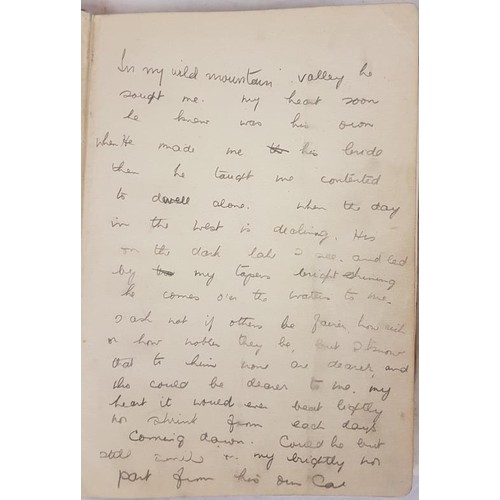 In my wild mountain valley he
sought me. My heart soon
he knew was his own
when He made me his bride
then he taught me contented
to dwell alone. When the day
in the West is declining. His
on the dark lake I see. and led
by my tapers bright shining
he comes o'er the waters to me.
I ask not if others be fairer, how
or how nobler they be, but I know
that to him none are dearer, and
who could be dearer to me. my
heart it would ever beat lightly
nor shrink from each days
Coming dawn. Could he but
still smile my brightly nor
part from his own